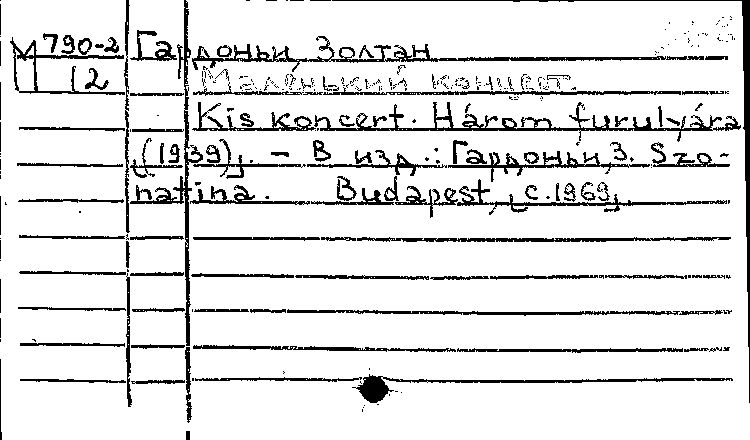 М 790-2 Гардоньи, Золтан
12 Маленький концерт.
Kis koncert. Három furulyára
[(1939)]. – В изд.: Гардоньи, З. Szo-
natina. Budapest, [c.1969].